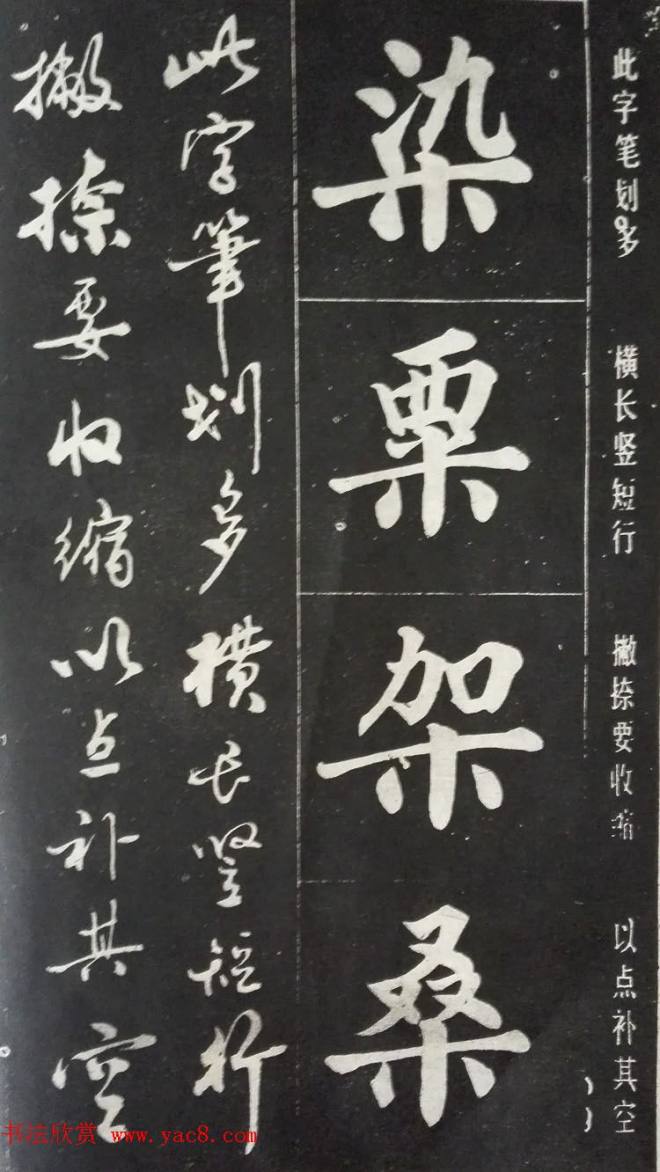 此字笔划多 横长竖短行 撇捺要收缩 以点补其空
染
栗
架
桑
此字筆划多横长竖短行
撇捺要收缩以点补其空
书法欣赏 www.yac8.com